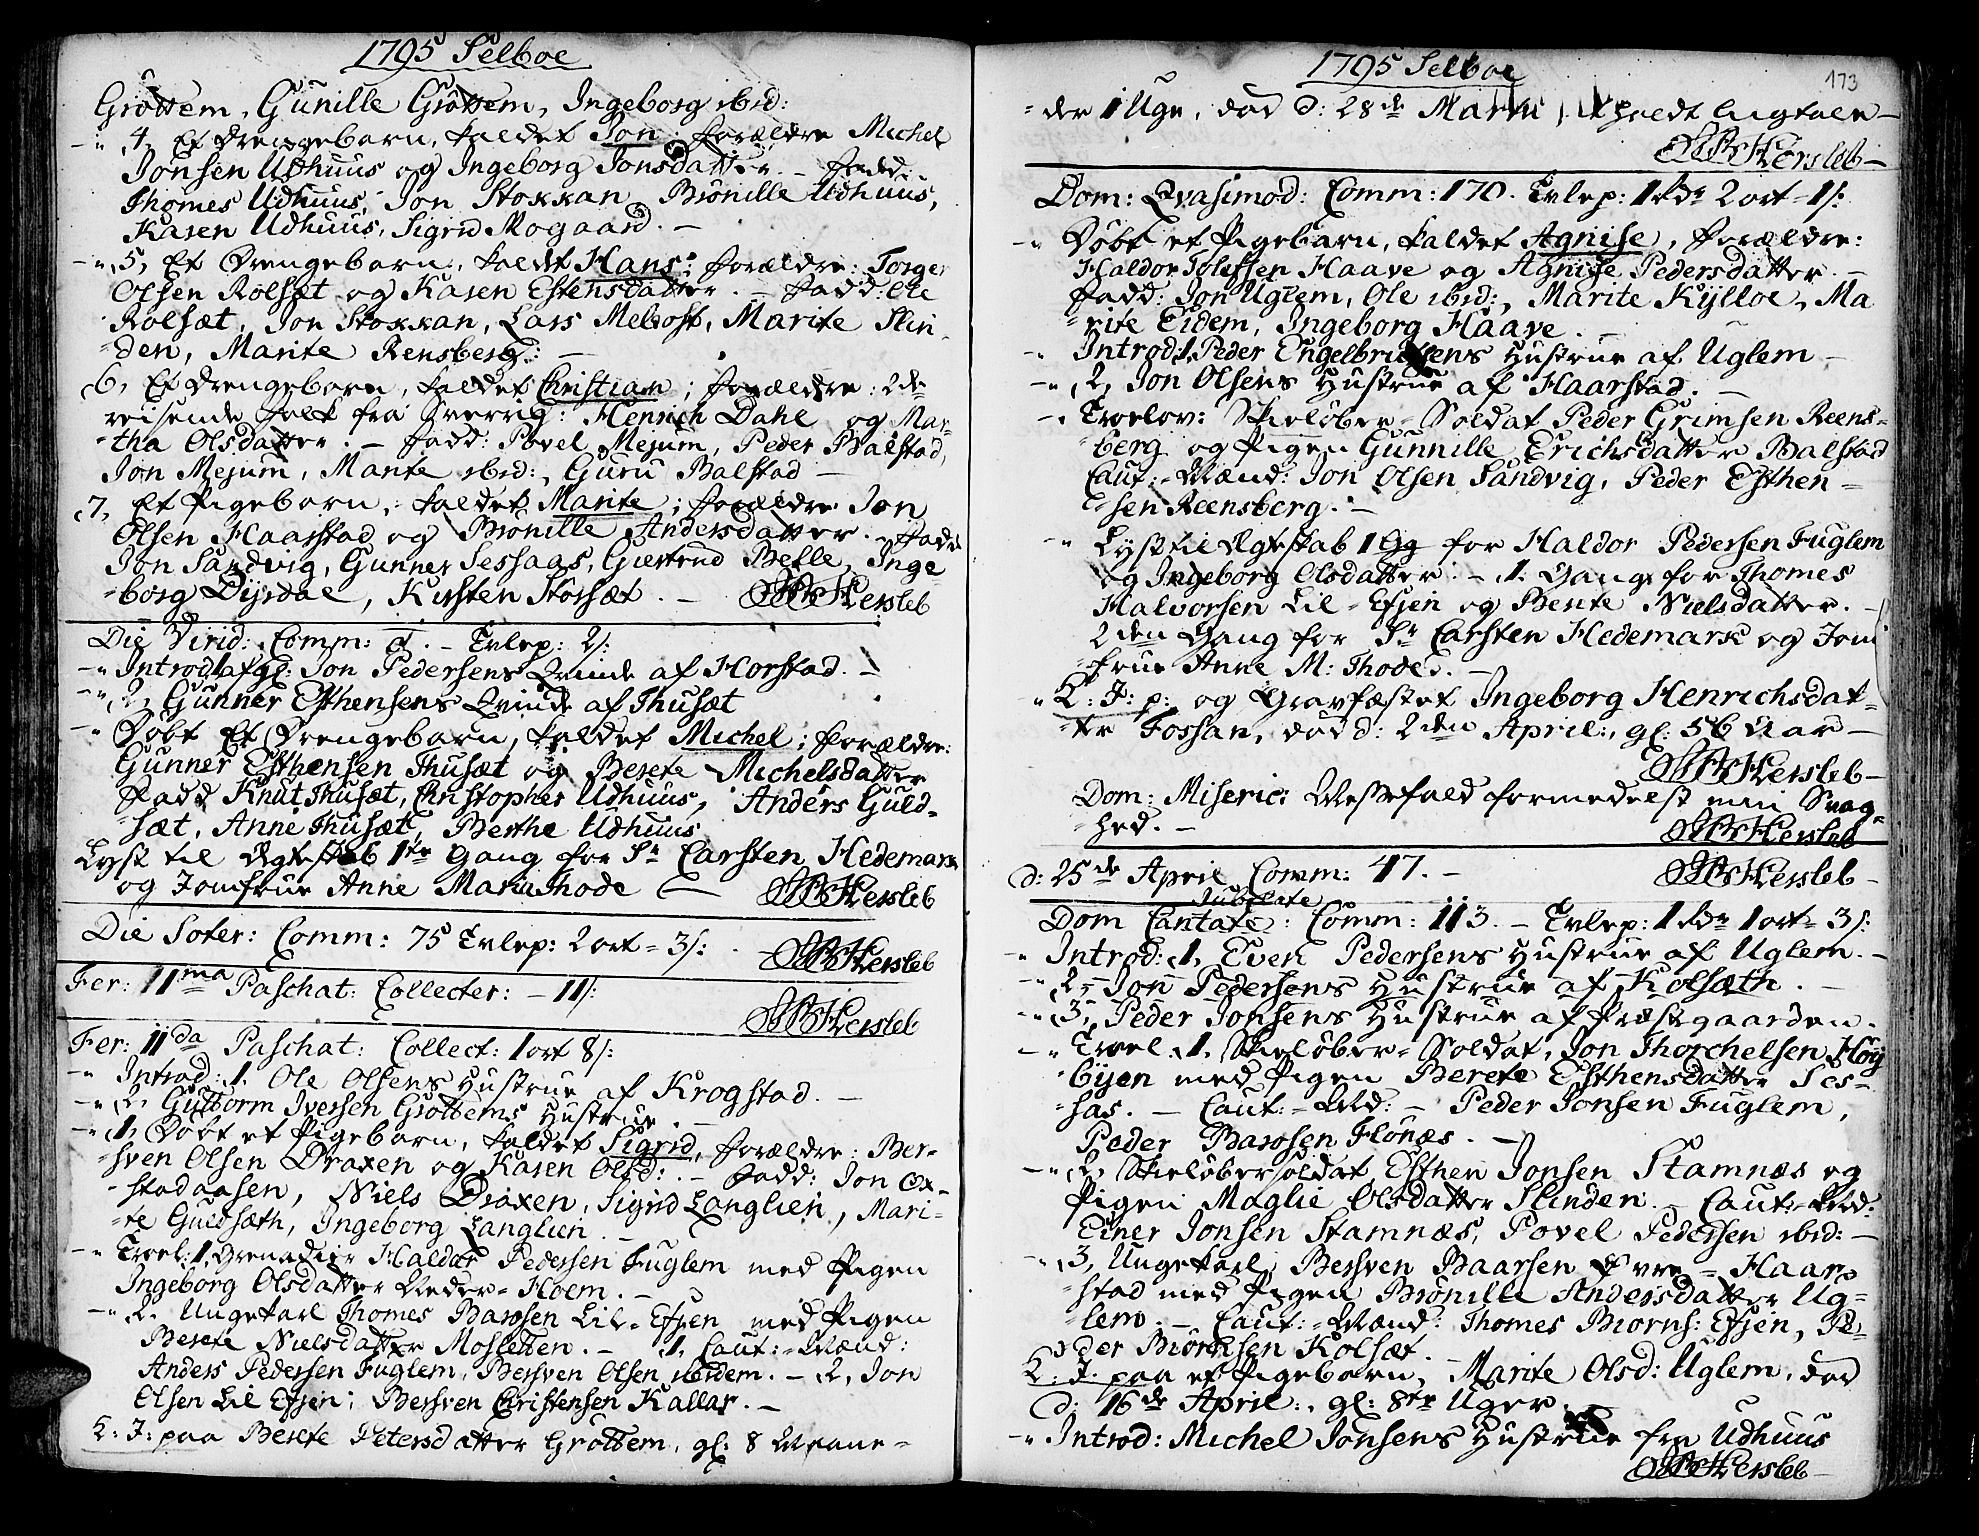 1795 Selboe
Grøttem, Gunille Grøttem, Ingeborg ibid:
4, Et Drengebarn, kaldet Jon; Forældre Michel
Jonsen Udhuus og Ingeborg Jonsdatter. - Fadd:
Thomes Udhuus, Jon Stokkan, Brønille Udhuus,
Karen Udhuus, Sigrid Mogaard. -
5, Et Drengebarn, kaldet Hans; Forældre: Torger
Olsen Rolsæt og Karen Estensdatter. - Fadd: Ole
Rolsæt, Jon Stokkan, Lars Mebost, Marite Slin-
den, Marite Rensberg: -
6, Et Drengebarn, kaldet Christian; Forældre: 2de
reisende Folk fra Sverrig: Henrich Dahl og Mar-
tha Olsdatter. - Fadd: Povel Mejum, Peder Balstad,
Jon Mejum, Marite ibid:, Guru Balstad -
7, Et Pigebarn, kaldet Marite; Forældre Jon
Olsen Haarstad og Brønille Andersdatter. - Fadd:
Jon Sandvig, Gunner Sessaas, Giertrud Belle, Inge-
borg Dyrdae, Kirsten Storsæt. - Hersleb
Die Virid: Comm: 9. - Tvlep: 2 s:
Introd: 1 af gl: Jon Pedersens Qvinde af Horstad. -
2, Gunner Esthensens Qvinde af Thusæt
Døbt Et Drengebarn, kaldet Michel; Forældre:
Gunner Esthensen Thusæt og Berete Michelsdatter
Fadd Knut Thusæt, Christopher Udhuus, Anders Guld-
sæt, Anne Thusæt, Berthe Udhuus
Lyst til Ægteskab 1te Gang for Sr Carsten Hedemark
og Jomfrue Anne Maria Thode - Hersleb
Die Soter: Comm: 75 Tvlep: 2 ort = 3 s: Hersleb
Fer: 11ma Paschat: Collecter: - 11 s:
Hersleb
Fer: 11da Paschat: Collect: 1 ort 8 s:
Introd: 1. Ole Olsens Hustrue af Krogstad. -
2. Guttorm Iversen Grøttems Hustrue. -
1, Døbt et Pigebarn, kaldet Sigrid, Forældre: Ber-
sven Olsen Draxen og Karen Olsd: - Fadd: Jon Ox-
stadaasen, Niels Draxen, Sigrid Langlien, Mari-
te Guldsæth, Ingeborg Langlien. -
Troel: 1, Grenadier Haldor Pedersen Fuglem med Pigen
Ingeborg Olsdatter Neder-Hoem. -
2. Ungekarl Thomes Barosen Lil-Efjen med Pigen
Berete Nielsdatter Mosletten. - 1, Caut:-Mænd:
Anders Pedersen Fuglem, Bersven Olsen ibidem. - 2, Jon
Olsen Lil Efjen; Bersven Christensen Kallar. -
L: J: paa Berete Petersdatter Grøttem, gl: 8 Maane-
1795 Selboe 173
der 1 Uge, død d: 28de Martii, holdt Ligtale -
Hersleb -
Dom: Qvasimod: Comm: 170. Tvlep: 1 rdr 2 ort = 1 s:
Døbt et Pigebarn, kaldet Agnise, Forældre:
Haldor Tolefsen Haave og Agnise Pedersdatter. -
Fadd: Jon Uglem, Ole ibid:, Marite Kylloe, Ma-
rite Eidem, Ingeborg Haave. -
Introd: 1. Peder Engelbrictsens Hustrue af Uglem -
2, Jon Olsens Hustrue af Haarstad. -
Troelov: Skieløber-Soldat Peder Grimsen Reens-
berg og Pigen Gunnille Erichsdatter Balstad
Caut:-Mænd: Jon Olsen Sandvig, Peder Esthen-
sen Reensberg. -
Lyst til Ægteskab 1 Gg for Haldor Pedersen Fuglem
og Ingeborg Olsdatter. - 1. Gang for Thomes
Halvorsen Lil-Efjen og Bente Nielsdatter. -
2den Gang for Sr Carsten Hedemark og Jom-
frue Anne M: Thode. -
L: J: p: og Gravfæstet Ingeborg Henrichsdat-
ter Fossan, død d: 2den April:, gl: 56 Aar -
Hersleb -
Dom: Miseric: Messefald formedelst min Svag-
hed. - Hersleb
d: 25de April Comm: 47. - Hersleb -
Jubilate
Dom Cantate: Comm: 113. - Tvlep: 1 rdr 1 ort = 3 s:
Introd: 1, Even Pedersens Hustrue af Uglem. -
2, Jon Pedersens Hustrue af Kolsæth. -
3, Peder Jonsens Hustrue af Præstgaarden.
Troel: 1. Skieløber-Soldat, Jon Thorchelsen Høy-
byen med Pigen Berete Esthensdatter Ses-
sas. - Caut:-Md: - Peder Jonsen Fuglem,
Peder Barosen Flønæs. -
2, Skieløbersoldat Esthen Jonsen Stamnæs og
Pigen Maglie Olsdatter Slinden. - Caut:-Md:
Einer Jonsen Stamnæs, Povel Pedersen ibid: -
3, Ungekarl Bersven Baarsen Øvre-Haar-
stad med Pigen Brønille Andersdatter Ug-
lem. - Caut:-Mænd: Thomes Biorns: Efjen, Pe-
der Biørnsen Kolsæt.
L. J. paa et Pigebarn, Marite Olsd: Uglem, død
d: 16de April:, gl: 8te Uger.
Introd: Michel Jonsens Hustrue fra Udhuus
Hersleb -